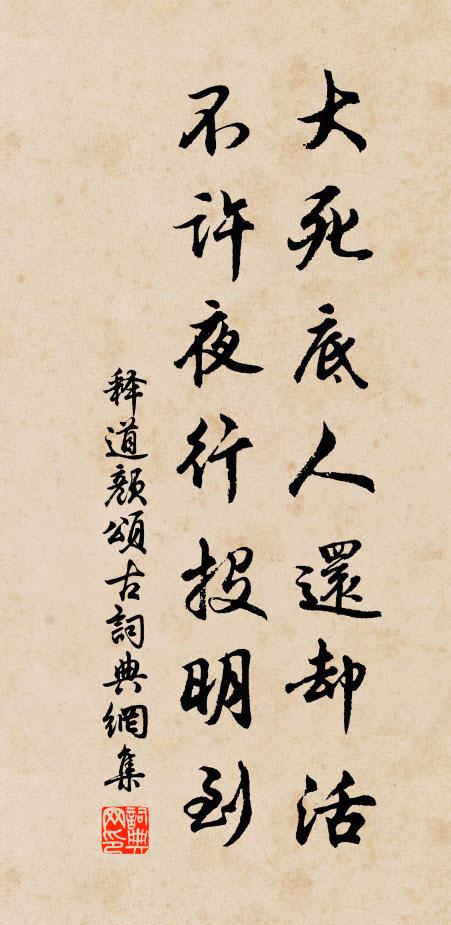 大死底人還却活
不許夜行投明到
释道顏頌古詞典網集
詞典网印